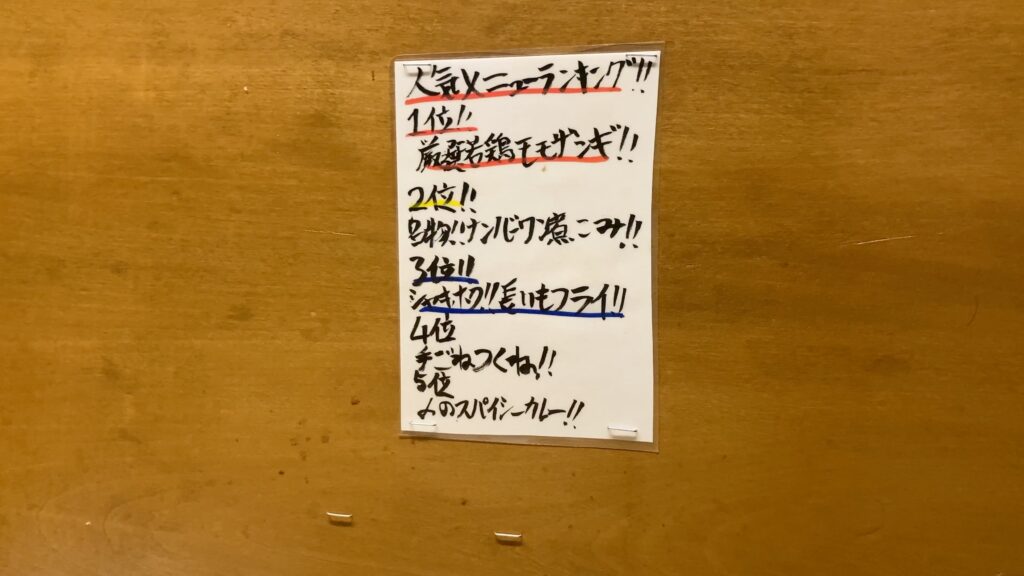 人気メニューランキング!!
1位!!
厳選若鶏モモザンギ!!
2位!!
名物!!ナンバワン煮こみ!!
3位!!
シャキホク!!長いもフライ!!
4位
手ごねつくね!!
5位
〆のスパイシーカレー!!